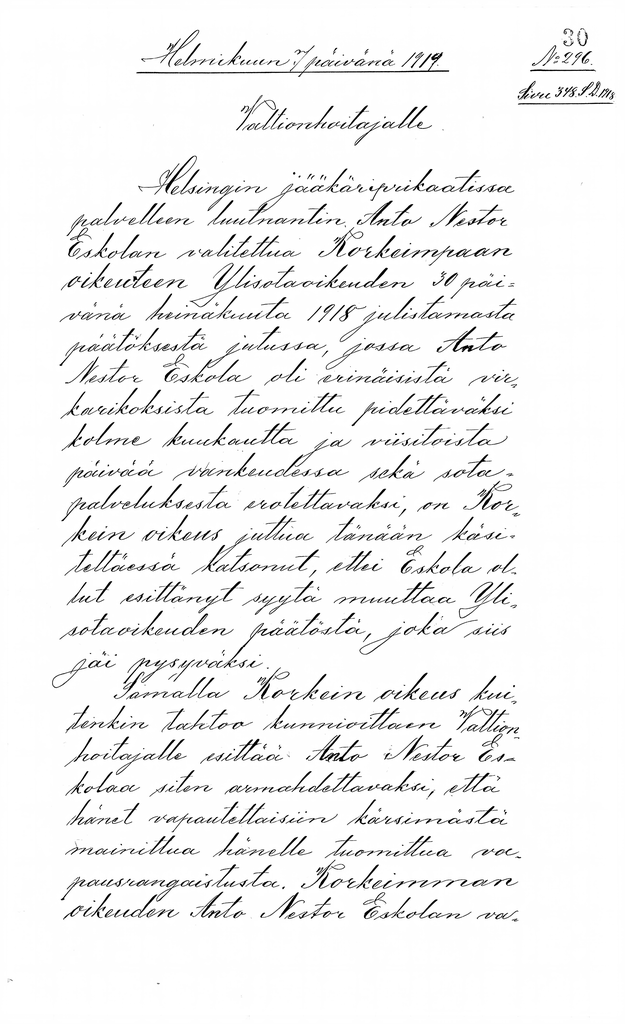 30
Helmikuun 7 päivänä 1919.
№ 296.
Sivu 348. S.D. 1918
Valtionhoitajalle.
Helsingin jääkäriprikaatissa
palvelleen luutnantin Anto Nestor
Eskolan valitettua Korkeimpaan
oikeuteen Ylisotaoikeuden 30 päi=
vänä heinäkuuta 1918 julistamasta
päätöksestä jutussa, jossa Anto
Nestor Eskola oli erinäisistä vir=
karikoksista tuomittu pidettäväksi
kolme kuukautta ja viisitoista
päivää vankeudessa sekä sota=
palveluksesta erotettavaksi, on Kor=
kein oikeus juttua tänään käsi=
teltäessä katsonut, ettei Eskola ol=
lut esittänyt syytä muuttaa Yli=
sotaoikeuden päätöstä, joka siis
jäi pysyväksi.
Samalla Korkein oikeus kui=
tenkin tahtoo kunnioittaen Valtion=
hoitajalle esittää Anto Nestor Es=
kolaa siten armahdettavaksi, että
hänet vapautettaisiin kärsimästä
mainittua hänelle tuomittua va=
pausrangaistusta. Korkeimman
oikeuden Anto Nestor Eskolan va=